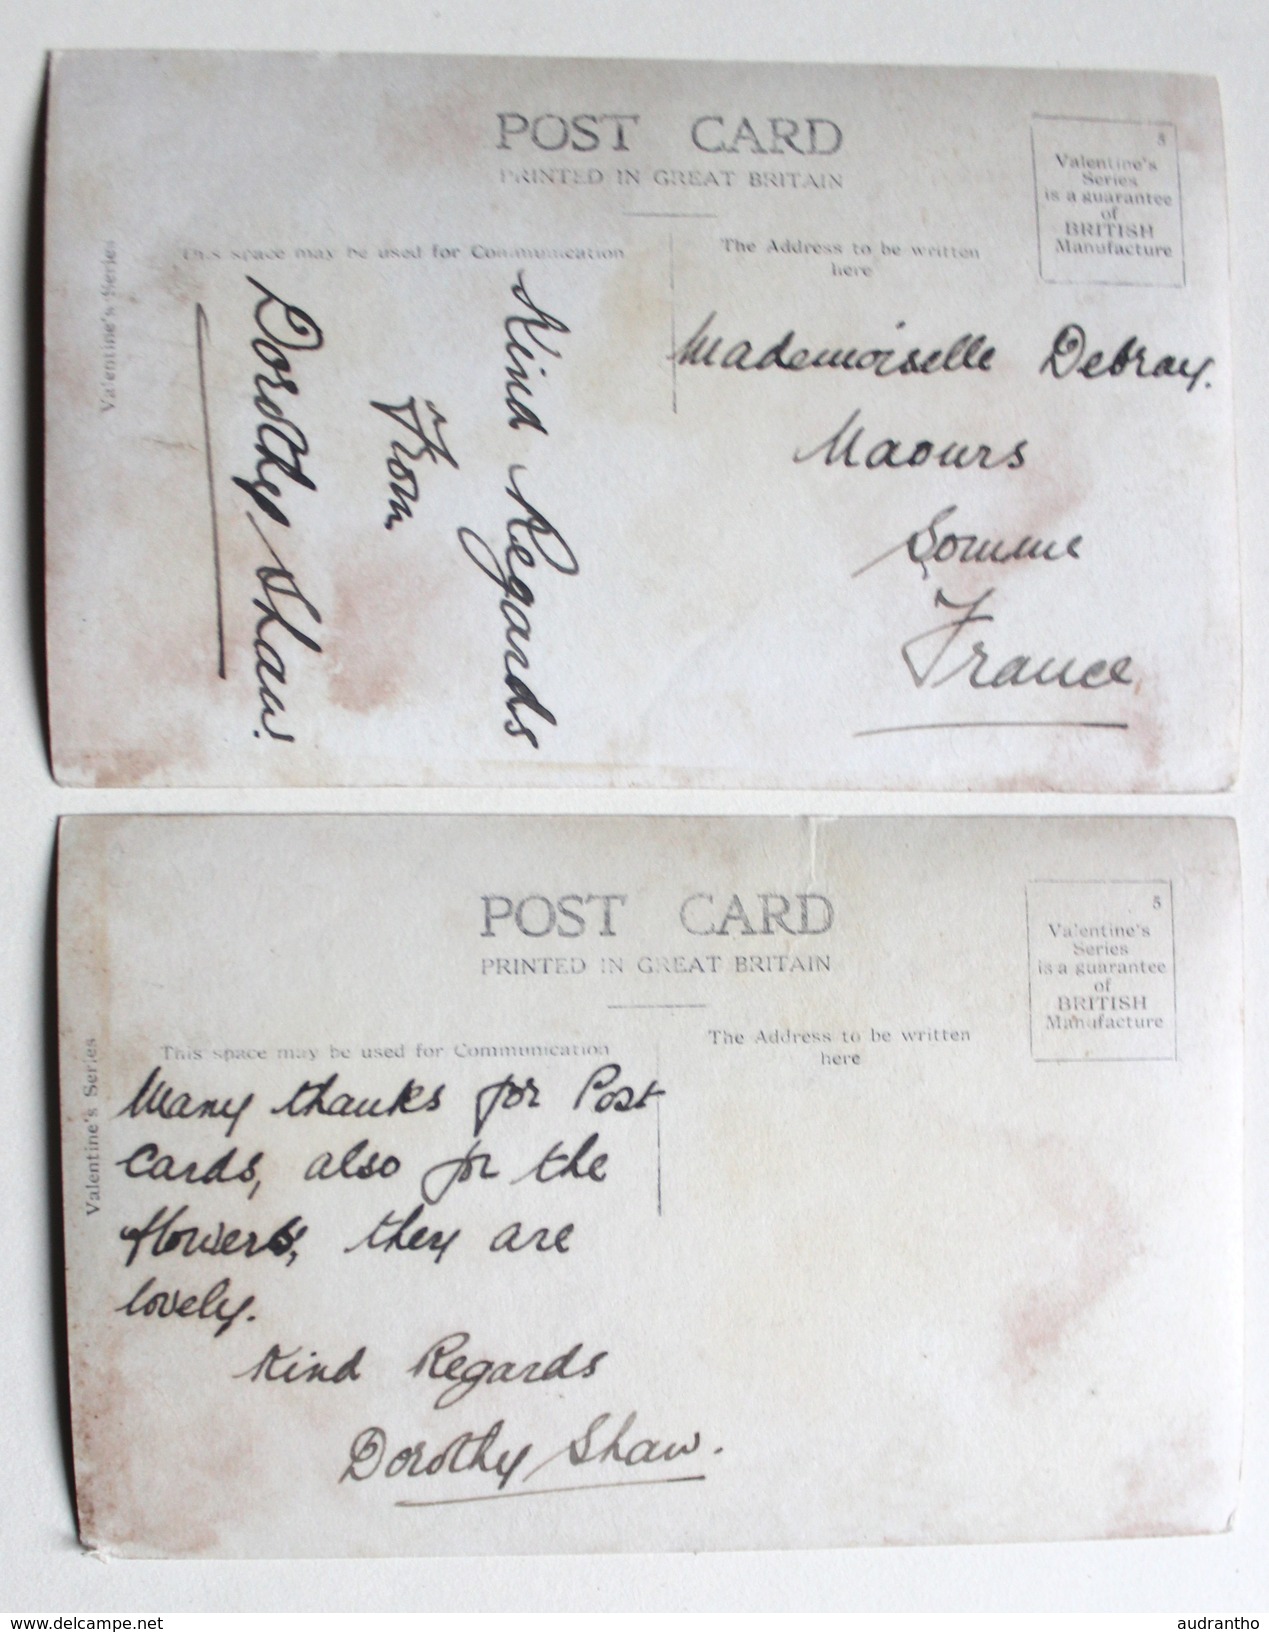 POST CARD
PRINTED IN GREAT BRITAIN
5
Valentine's
Series
is a guarantee
of
BRITISH
Manufacture
This space may be used for Communication
The Address to be written
here
Valentine's Series
Kind Regards
From
Dorothy Shaw.
Mademoiselle Debray.
Maours
Somme
France
POST CARD
PRINTED IN GREAT BRITAIN
5
Valentine's
Series
is a guarantee
of
BRITISH
Manufacture
This space may be used for Communication
The Address to be written
here
Valentine's Series
Many thanks for Post
Cards, also for the
flowers, they are
lovely.
Kind Regards
Dorothy Shaw.
www.delcampe.net
audrantho